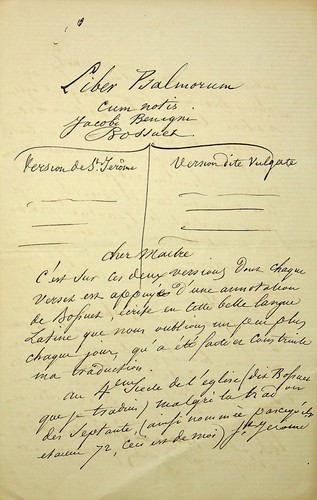 Liber Psalmorum
cum notis
Jacobi Benigni
Bossuet
Version de St Jérôme
Version dite Vulgate
cher Maître
C'est sur ces deux versions dont chaque
verset est appuyé d'une annotation
de Bossuet, écrite en cette belle langue
Latine que nous oublions un peu plus
chaque jour, qu'a été faite et construite
ma traduction.
au 4eme Siècle de l'église (dit Bossuet
que je traduis) malgré la trad on
des Septante, (ainsi nommée parcequ'ils
etaient 72, ceci est de moi) St Jerome